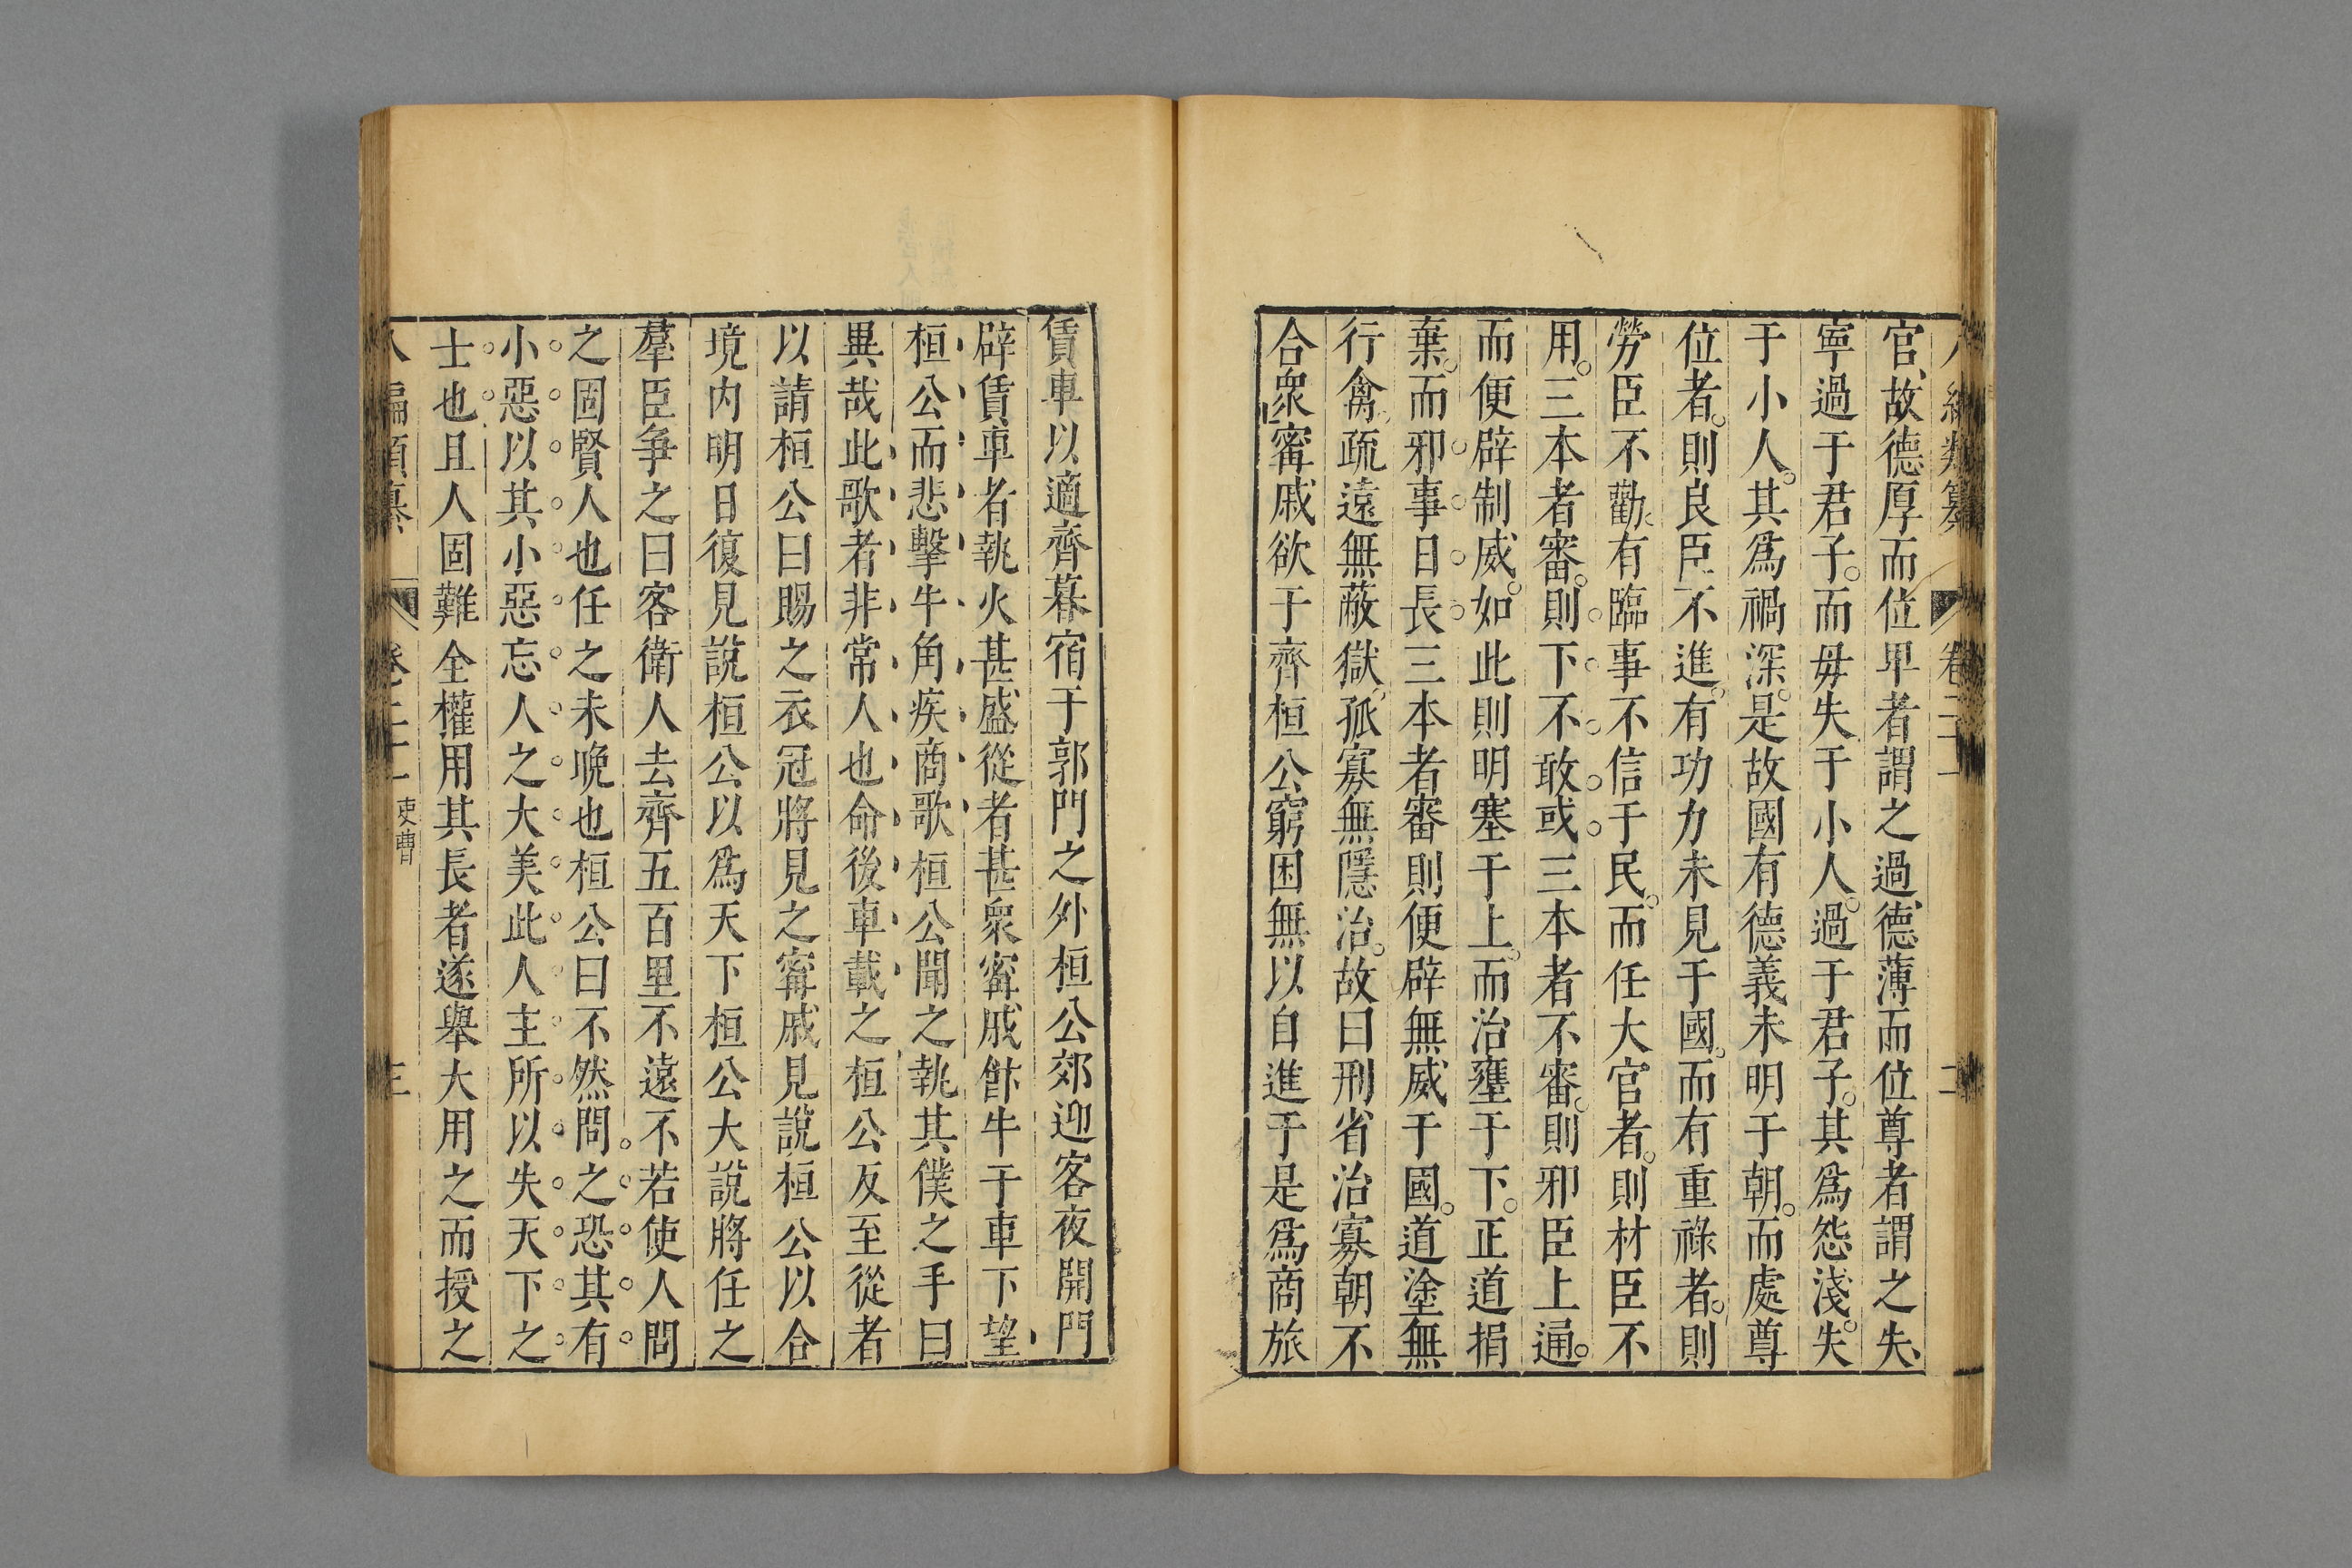 官故德厚而位卑者謂之過德薄而位尊者謂之失
寧過于君子而毋失于小人過于君子其爲怨淺失
于小人其爲禍深是故國有德義未明于朝而處尊
位者則良臣不進有功力未見于國而有重祿者則
勞臣不勸有臨事不信于民而任大官者則材臣不
用三本者審則下不敢或三本者不審則邪臣上通
而便辟制威如此則明塞于上而治壅于下正道捐
棄而邪事日長三本者審則便辟無威于國道塗無
行禽疏遠無蔽獄孤寡無隱治故曰刑省治寡朝不
合衆甯戚欲于齊桓公窮困無以自進于是爲商旅
賃車以適齊暮宿于郭門之外桓公郊迎客夜開門
辟賃車者執火甚盛從者甚衆甯戚飰牛于車下望
桓公而悲擊牛角疾商歌桓公聞之執其僕之手曰
異哉此歌者非常人也命後車載之桓公反至從者
以請桓公曰賜之衣冠將見之甯戚見說桓公以合
境内明日復見說桓公以爲天下桓公大說將任之
羣臣争之曰客衛人去齊五百里不遠不若使人問
之固賢人也任之未晚也桓公曰不然問之恐其有
小惡以其小惡忘人之大美此人主所以失天下之
士也且人固難全權用其長者遂舉大用之而授之
八編類纂 卷二十一 吏曹 三